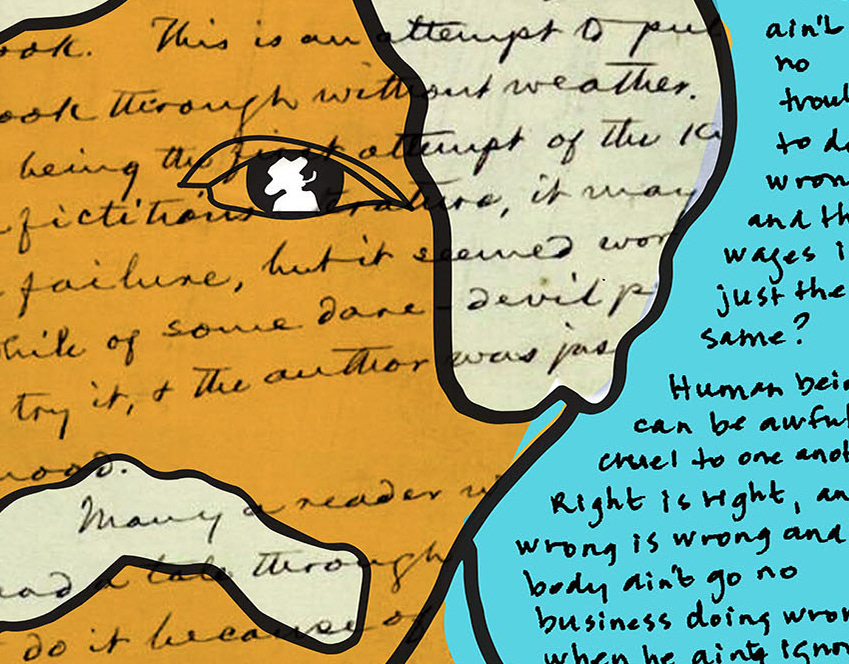 ook. This is an attempt to pul
ook through without weather.
being the first attempt of the
fictitious literature, it may
failure, but it seemed wor
while of some dare-devil p
try it, & the author was jus
mood.
Many a reader w
ead a tale through
do it because of
ain't
no
troub
to do
wron
and th
wages i
just the
same?
Human bein
can be awful
cruel to one anot
Right is right, an
wrong is wrong and
body ain't go no
business doing wron
when he ain't ignor